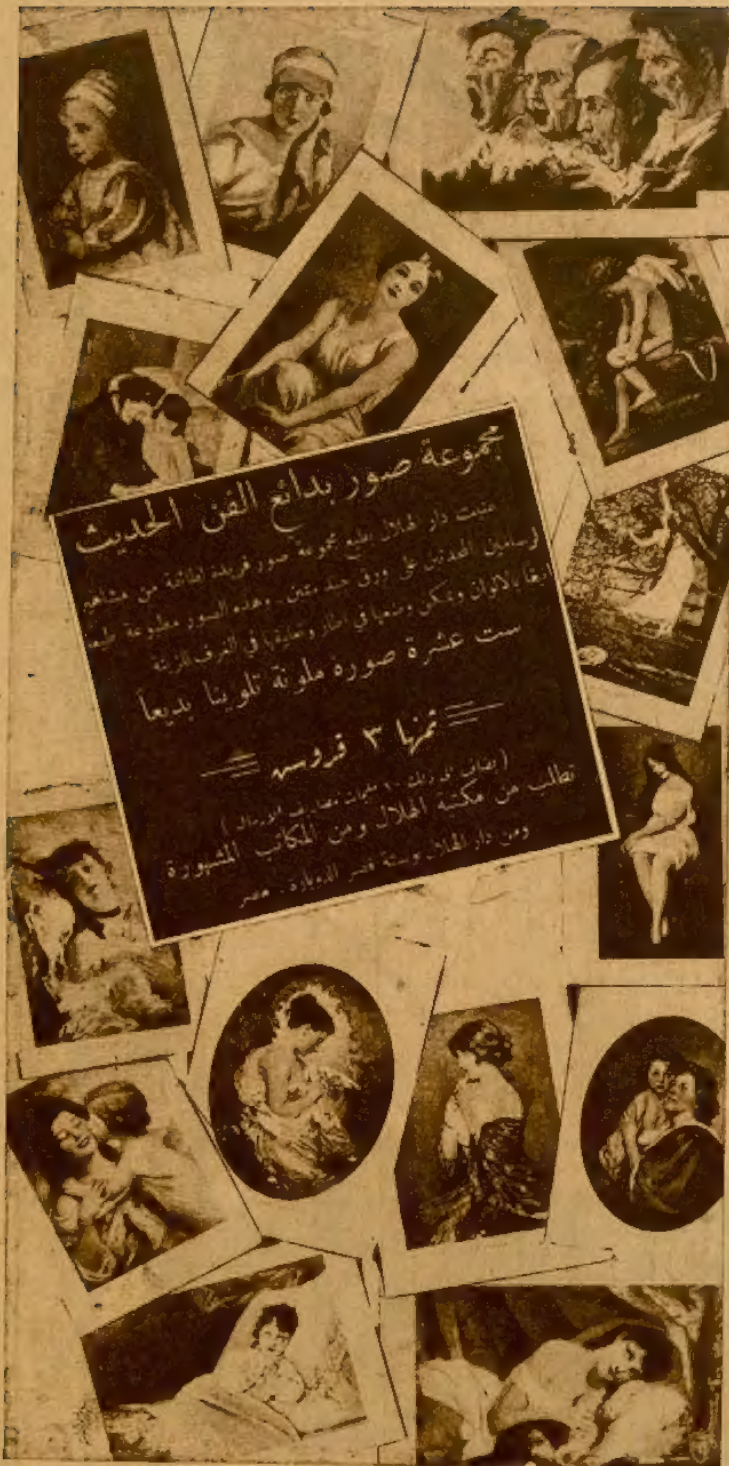 مجموعة صور بدائع الفن الحديث
عنيت دار الهلال بطبع مجموعة صور فريدة لطائفة من مشاهير
الرسامين المحدثين على ورق جيد متين . وهذه الصور مطبوعة طبعا
انيقا بالالوان ويمكن وضعها في اطار وتعليقها في الغرف للزينة
ست عشرة صورة ملونة تلوينا بديعاً
ثمنها ٣ قروش
( يضاف الى ذلك مليمات مصاريف الارسال )
تطلب من مكتبة الهلال ومن المكاتب المشهورة
ومن دار الهلال بوستة قصر الدوبارة . مصر